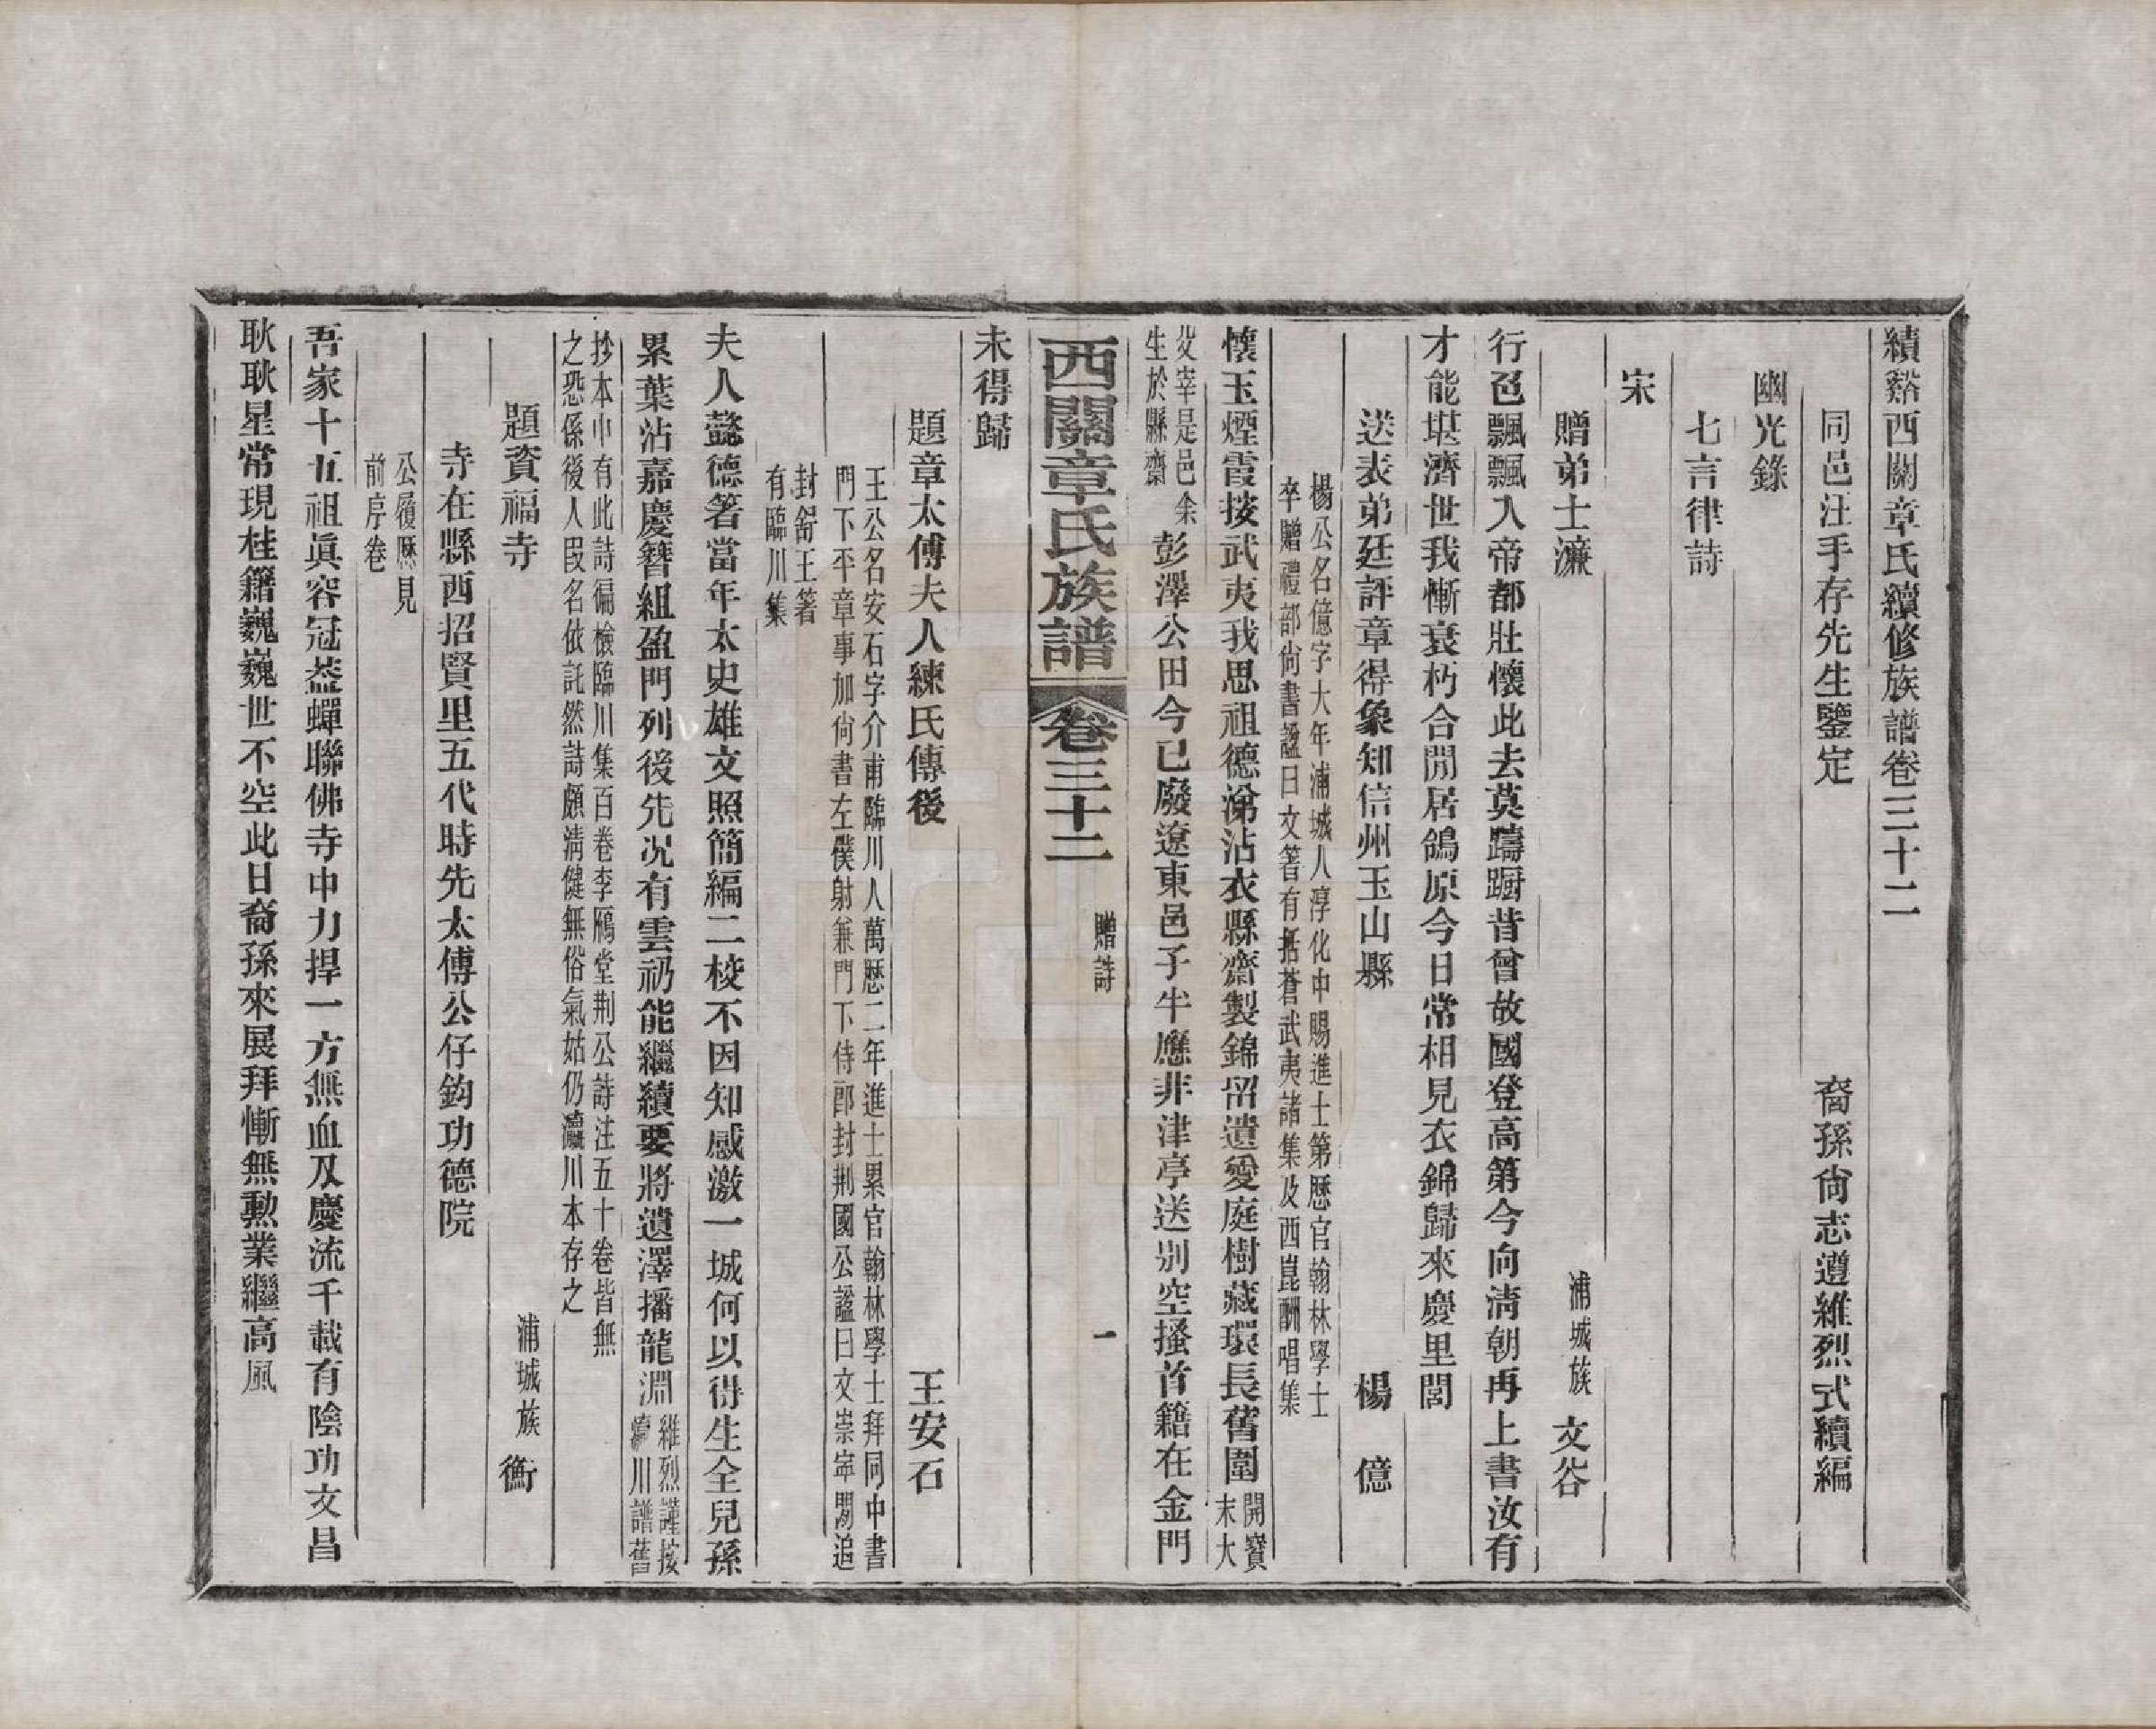 績谿西關章氏續修族譜卷三十二
同邑汪手存先生鑒定
裔孫尙志遵維烈式續編
幽光錄
七言律詩
宋
贈弟士濂
浦城族 文谷
行色飄飄入帝都壯懷此去莫躊蹰昔曾故國登高第今向淸朝再上書汝有
才能堪濟世我慚衰朽合閒居鴿原今日常相見衣錦歸來慶里閭
送表弟廷評章得象知信州玉山縣
楊 億
楊公名億字大年浦城人淳化中賜進士第歷官翰林學士
卒贈禮部尙書諡曰文箸有括蒼武夷諸集及西崑酬唱集
懷玉煙霞接武夷我思祖德涕沾衣縣齋製錦畱遺愛庭樹藏環長舊圍
開寶
末大
父宰是邑余
生於縣齋
彭澤公田今已廢遼東邑子半應非津亭送別空搔首籍在金門
西關章氏族譜
卷三十二
贈詩
一
未得歸
題章太傅夫人練氏傳後
王安石
王公名安石字介甫臨川人萬歷二年進士累官翰林學士拜同中書
門下平章事加尙書左僕射兼門下侍郎封荆國公諡曰文崇寧閒追
封舒王箸
有臨川集
夫人懿德箸當年太史雄文照簡編二校不因知感激一城何以得生全兒孫
累葉沾嘉慶簪組盈門列後先况有雲礽能繼續要將遺澤播龍淵
維烈謹按
瀛川譜舊
抄本中有此詩徧檢臨川集百卷李鴈堂荆公詩注五十卷皆無
之恐係後人叚名依託然詩頗淸健無俗氣姑仍瀛川本存之
題資福寺
浦城族 衡
寺在縣西招賢里五代時先太傅公仔鈞功德院
公履歷見
前序卷
吾家十五祖眞容冠葢蟬聯佛寺中力捍一方無血刄慶流千載有陰功文昌
耿耿星常現桂籍巍巍世不空此日裔孫來展拜慚無勳業繼高風